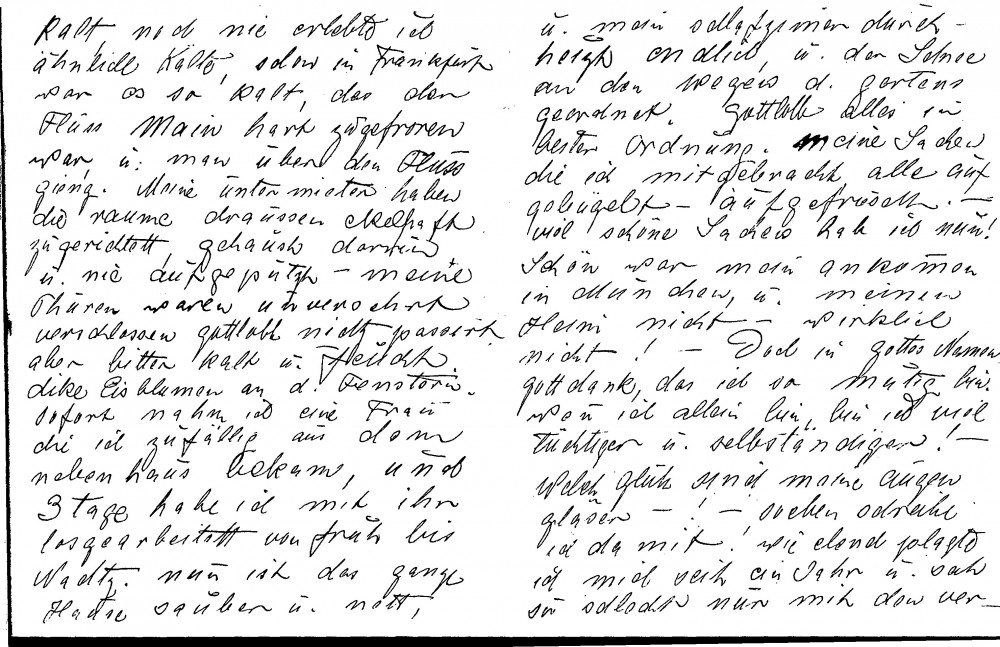 Kalt, noch nie erlebte ich
ähnliche Kälte, schon in Frankfurt
war es so kalt, das der
Fluss Main hart zugefroren
war, u. man über den Fluss
gieng. Meine Untermieter haben
die räume draussen ekelhaft
zugerichtett, gehaust darrin
u. nie aufgeputzt – meine
Thüren waren unversehrt
verschlossen gottlobb nichts passiert
aber bitter kalt u. feucht.
dike Eisblumen an d. Fenstern.
sofort nahm ich eine Frau
die ich zufällig aus dem
nebenhaus bekam, und
3 tage habe ich mit ihr
losgearbeitett von früh bis
Nachtz. nun ist das ganze
Hause sauber u. nett,
u. mein schlafzimer durch-
heizt endlich, u. der Schnee
an den wegen d. gartens
geordnet. Gottlobb alles in
bester Ordnung. meine Sachen
die ich mitgebracht alle auf
gebügelt – aufgefrischt. –
viel schöne Sachen hab ich nun!
Schön war mein ankomen
in München, u. meinen
Heini nicht – wirklich
nicht! – Doch in gottes Namen,
gottdank, das ich so mutig bin.
wen ich allein bin, bin ich viel
tüchtiger u. selbständiger! –
Welch glük sind meine augen
gläser – ! – soeben schreibe
ich damit! wie elend plagte
ich mich seit ein Jahr u. sah
so schlecht nur mit den ver-